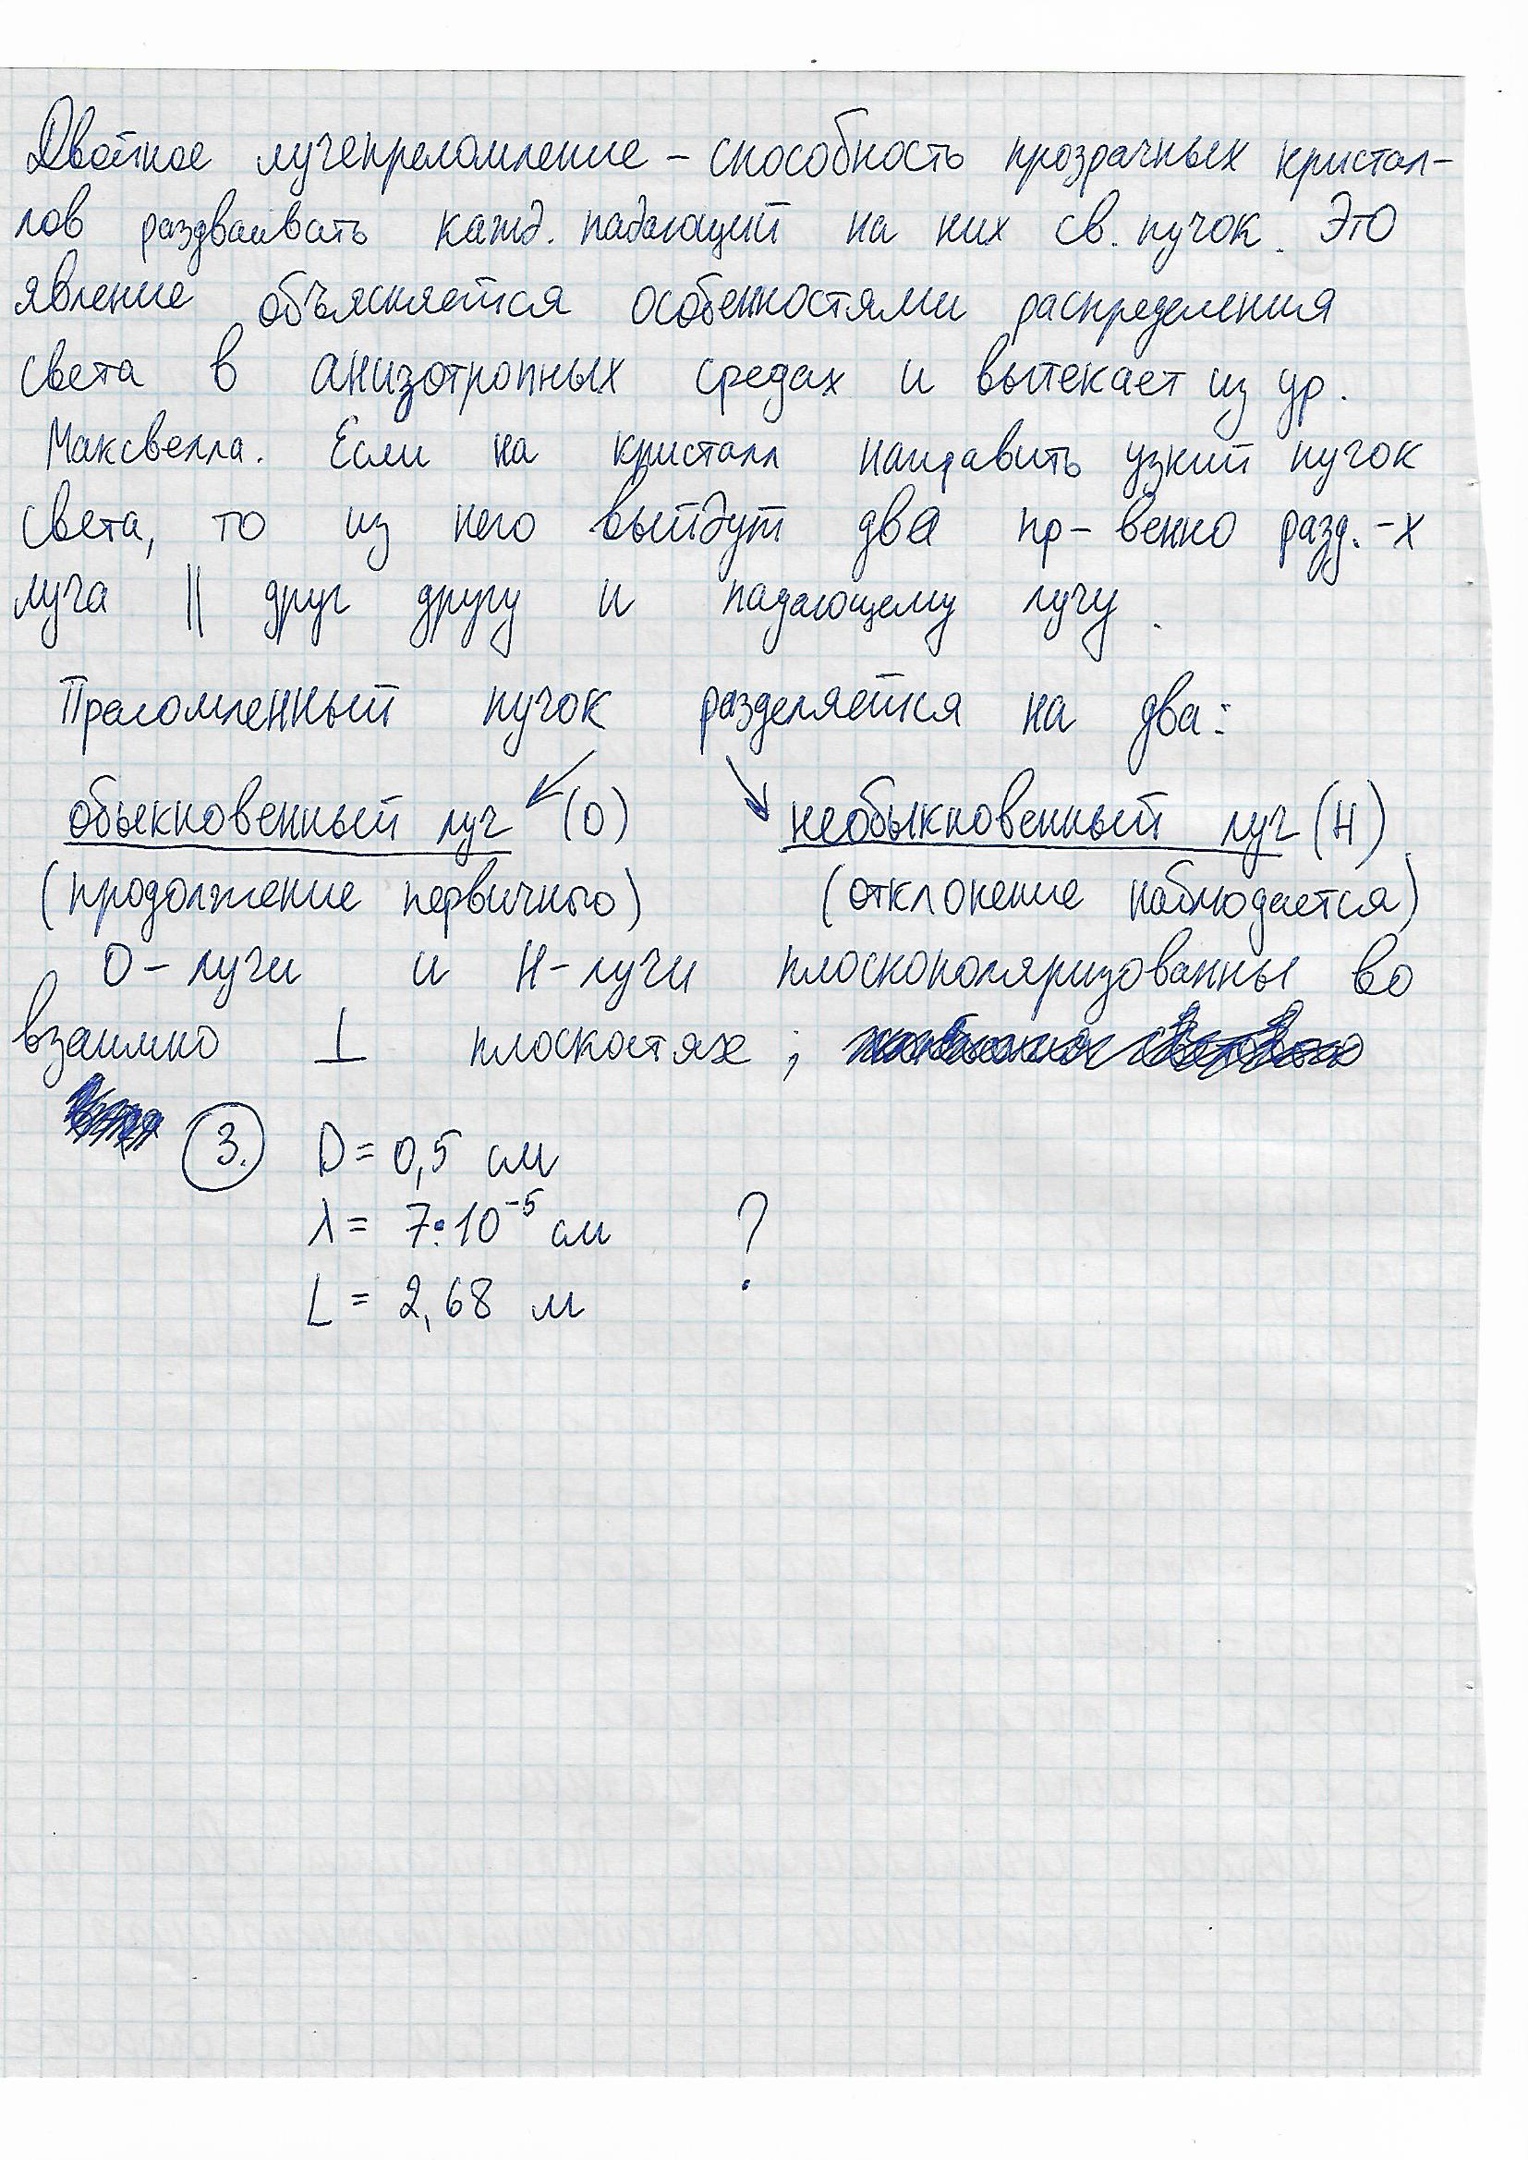 Двойное лучепреломление – способность прозрачных кристал-
лов раздваивать кажд. падающий на них св. пучок. Это
явление объясняется особенностями распределения
света в анизотропных средах и вытекает из ур.
Максвелла. Если на кристалл направить узкий пучок
света, то из него выйдут два пр-венно разд.-х
луча || друг другу и падающему лучу.
Преломленный пучок разделяется на два:
обыкновенный луч (О) необыкновенный луч (Н)
(продолжение первичного) (отклонение наблюдается)
О-лучи и Н-лучи плоскополяризованны во
взаимно ⊥ плоскостях ;
3. D = 0,5 см
λ = 7·10⁻⁵ см ?
L = 2,68 м